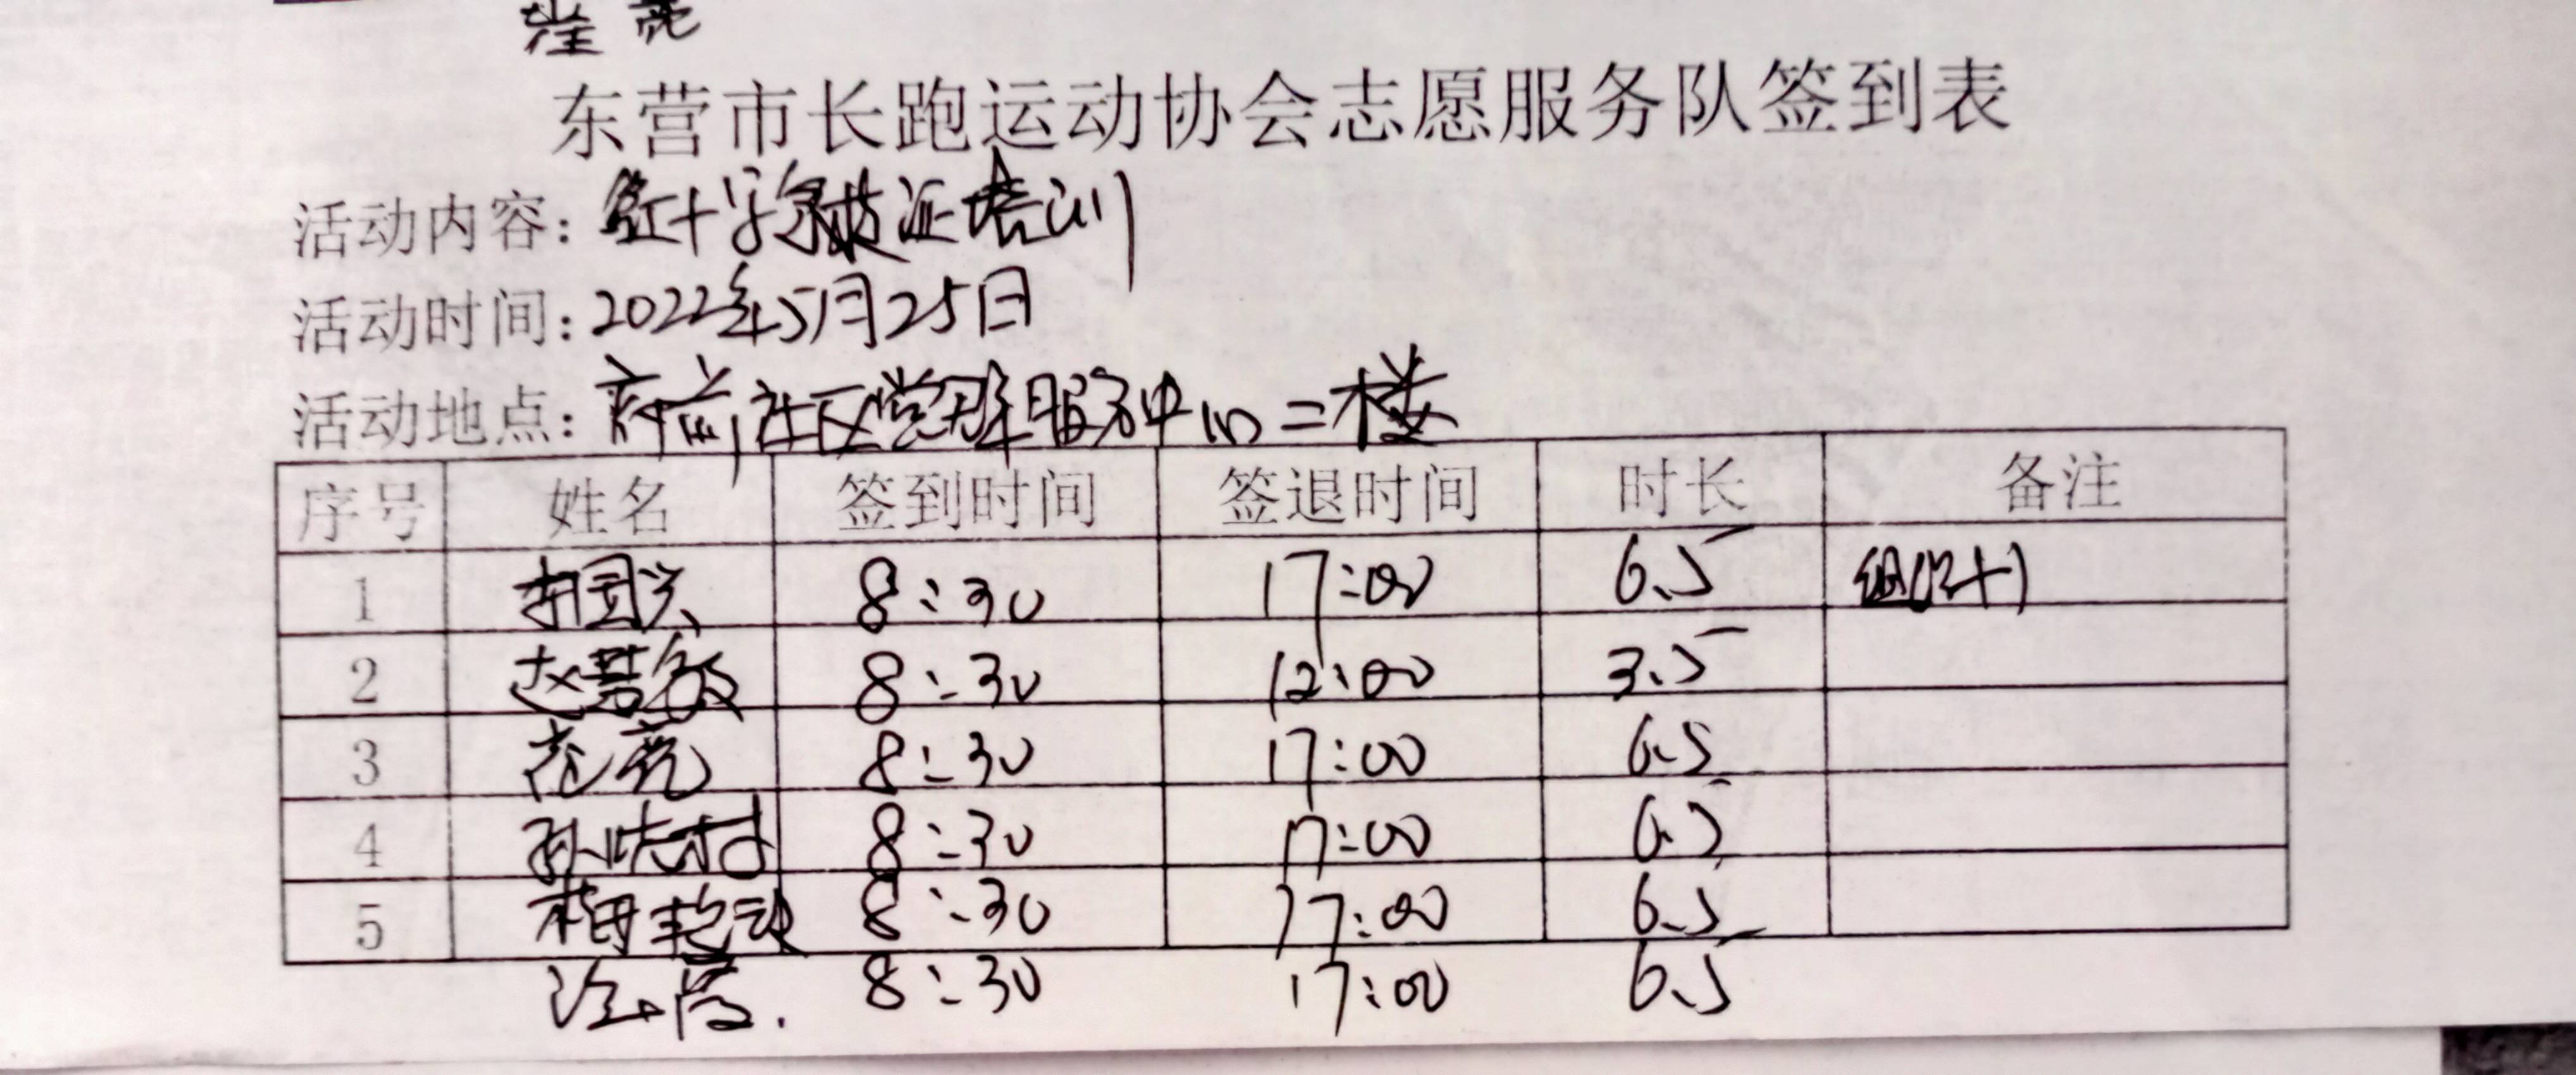 东营市长跑运动协会志愿服务队签到表
活动内容：红十字救护证培训
活动时间：2022年5月25日
活动地点：府前社区党群服务中心二楼
序号 姓名 签到时间 签退时间 时长 备注
1 8:30 17:00 6.5
2 8:30 12:00 3.5
3 8:30 17:00 6.5
4 8:30 17:00 6.5
5 8:30 17:00 6.5
8:30 17:00 6.5